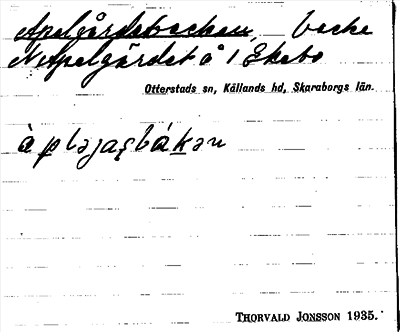 Apelgårdsbacken, backe
N Apelgärdet å 1 Ekebo
Otterstads sn, Kållands hd, Skaraborgs län.
THORVALD JONSSON 1935.